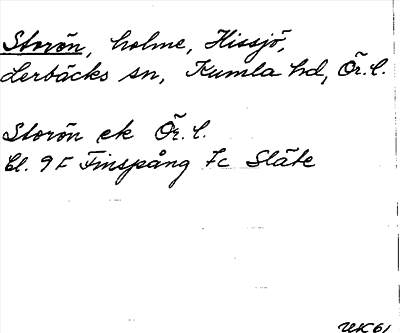 Storön, holme, Hissjö,
Lerbäcks sn, Kumla hd, Ör. l.
Storön ek Ör. l.
Bl. 9F Finspång 7c Släte
UK 61